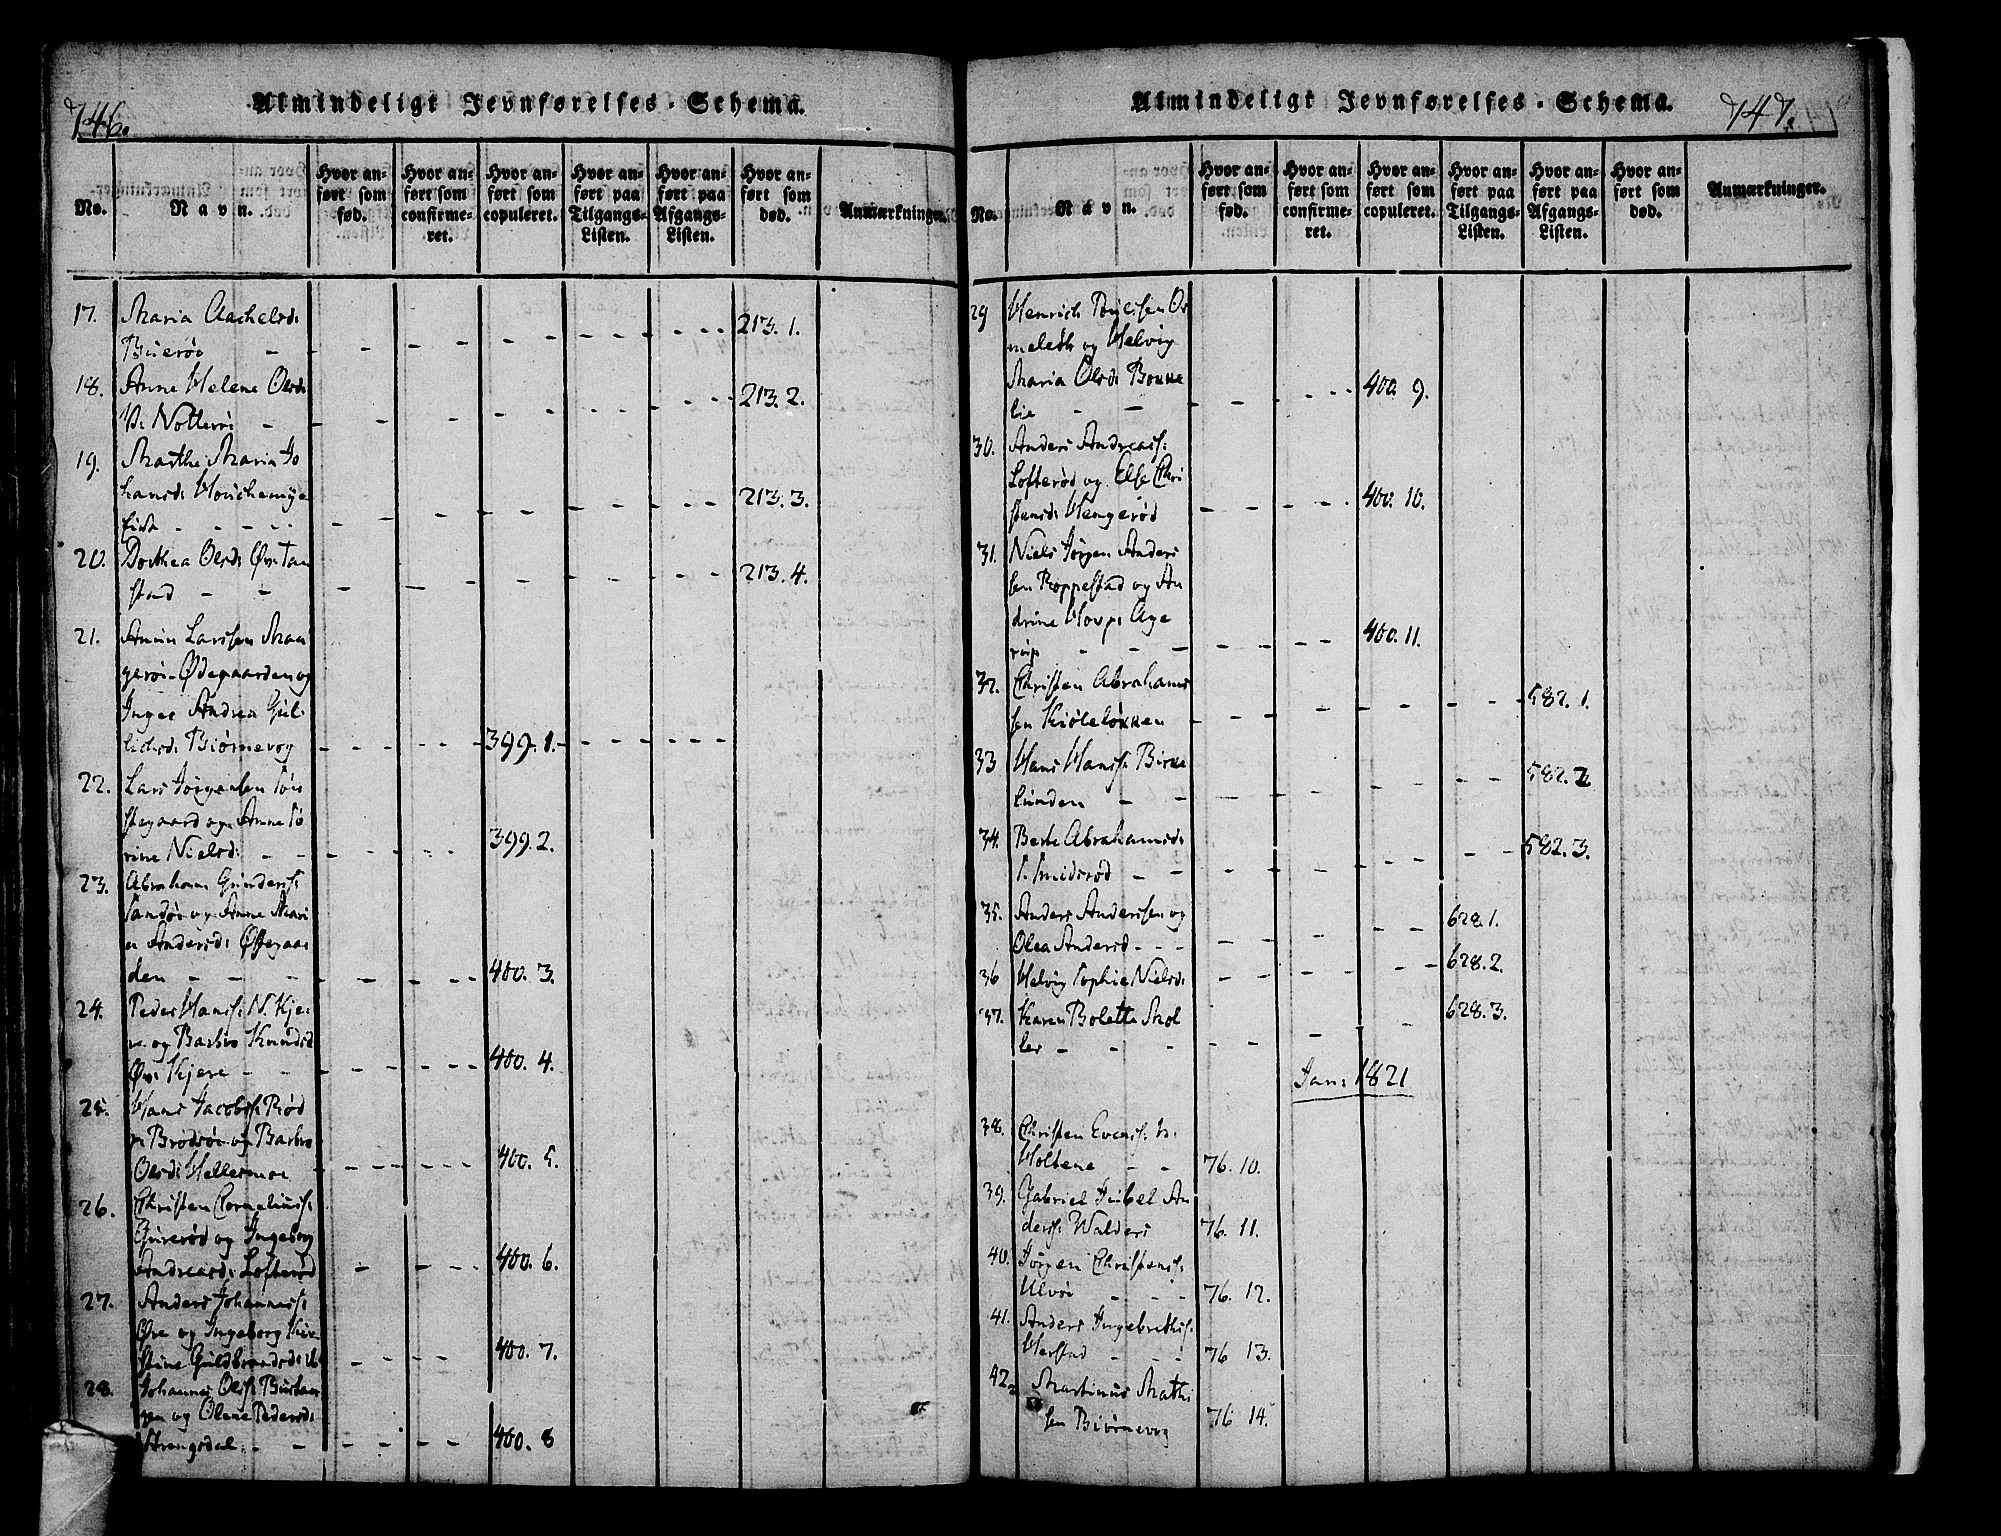 746.
Almindeligt Jevnførelses-Schema.
No.
Navn.
Hvor anført som fød.
Hvor anført som confirmeret.
Hvor anført som copuleret.
Hvor anført paa Tilgangs-Listen.
Hvor anført paa Afgangs-Listen.
Hvor anført som død.
Anmærkninger.
17. Maria Aachelsd:
Buerøe - - - - - - 213. 1.
18. Anne Helene Olsd:
V: Notterøe - - - - - - 213. 2.
19. Marthe Maria Jo
hansd: - - - - - - 213. 3.
20. Dorthea Olsd: Øv: Tan
stad - - - - - - 213. 4.
21. Larssen Maa
gerøe Ødegaarden og
Inger Andrea Gul
lichsd: Biørnevog - - 399. 1. - - -
22. Lars Jørgensen
og Anne To
rine Nielsd: - - 399. 2.
23. Abraham Gunderss:
Sandøe og Anne Mari
e Andersd: Østegaar
den - - 400. 3.
24. Peder Hanss: N. Kje
re og Barbro Knudsd:
Øv: Kjere - - 400. 4.
25. Hans Jacobss: Rød
p: Brødsøe og Barbro
Olsd: Hellesmoe - - 400. 5.
26. Christen Corneliuss:
Gurerød og Ingeborg
Andreasd: Lofterød - - 400. 6.
27. Anders Johanness:
Øre og Ingeborg Kir
stine Guldbrandsd: - - 400. 7.
28. Johannes Olss: Bustan
gen og Olene Pedersd:
Strengsdal - - 400. 8
Almindeligt Jevnførelses-Schema.
747.
No.
Navn.
Hvor anført som fød.
Hvor anført som confirmeret.
Hvor anført som copuleret.
Hvor anført paa Tilgangs-Listen.
Hvor anført paa Afgangs-Listen.
Hvor anført som død.
Anmærkninger.
29 Henrich Poulssen Or
meleth og Helvig
Maria Olsd: Bokke
lie - - 400. 9.
30. Anders Andreass:
Lofterød og Else Chri
stensd: Hengerød - - 400. 10.
31. Niels Jørgen Anders
sen Roppestad og An
drine Hovp: Age
rup - - 400. 11.
32. Christen Abrahams
sen Kiøleløkken - - - - 582. 1.
33 Hans Hanss: Birke
lunden - - - - 582. 2
34. Berte Abrahamsd:
Smidsrød - - - - 582. 3.
35. Anders Anderssen og
Olea Andersd - - - 628. 1.
36 Helvig Sophie Nielsd: - - - 628. 2.
37. Karen Bolette Mol
ler - - - 628. 3.
Jan: 1821
38. Christen Evenss: N.
Holtene - - 76. 10.
39. Gabriel Jubel An
derss: Walders 76. 11.
40. Jørgen Christenss:
Ulvøe - - - 76. 12.
41. Anders Ingebrethss:
Herstad - - - 76 13.
42. Martinus Mathi
sen Biørnevog 76 14.